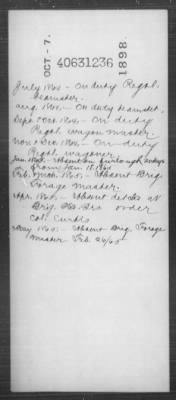 OCT - 7.
40631236
1898
July 1864 - On duty Regtl.
teamster.
Aug. 1864 - On duty teamster.
Sept & Oct. 1864 - On duty
Regtl. wagon master.
Nov & Dec. 1864 - On duty
Regtl. wagoner
Jan. 1865 - Absent on furlough
from Jan. 18.
Feb. Mch. 1865 - Absent Brig
Forage master.
Apr. 1865 - Absent det. as at
Brig. Hd. Qrs order
Col. Curtis
May 1865 - Absent Brig Forage
master Feb. 26/65